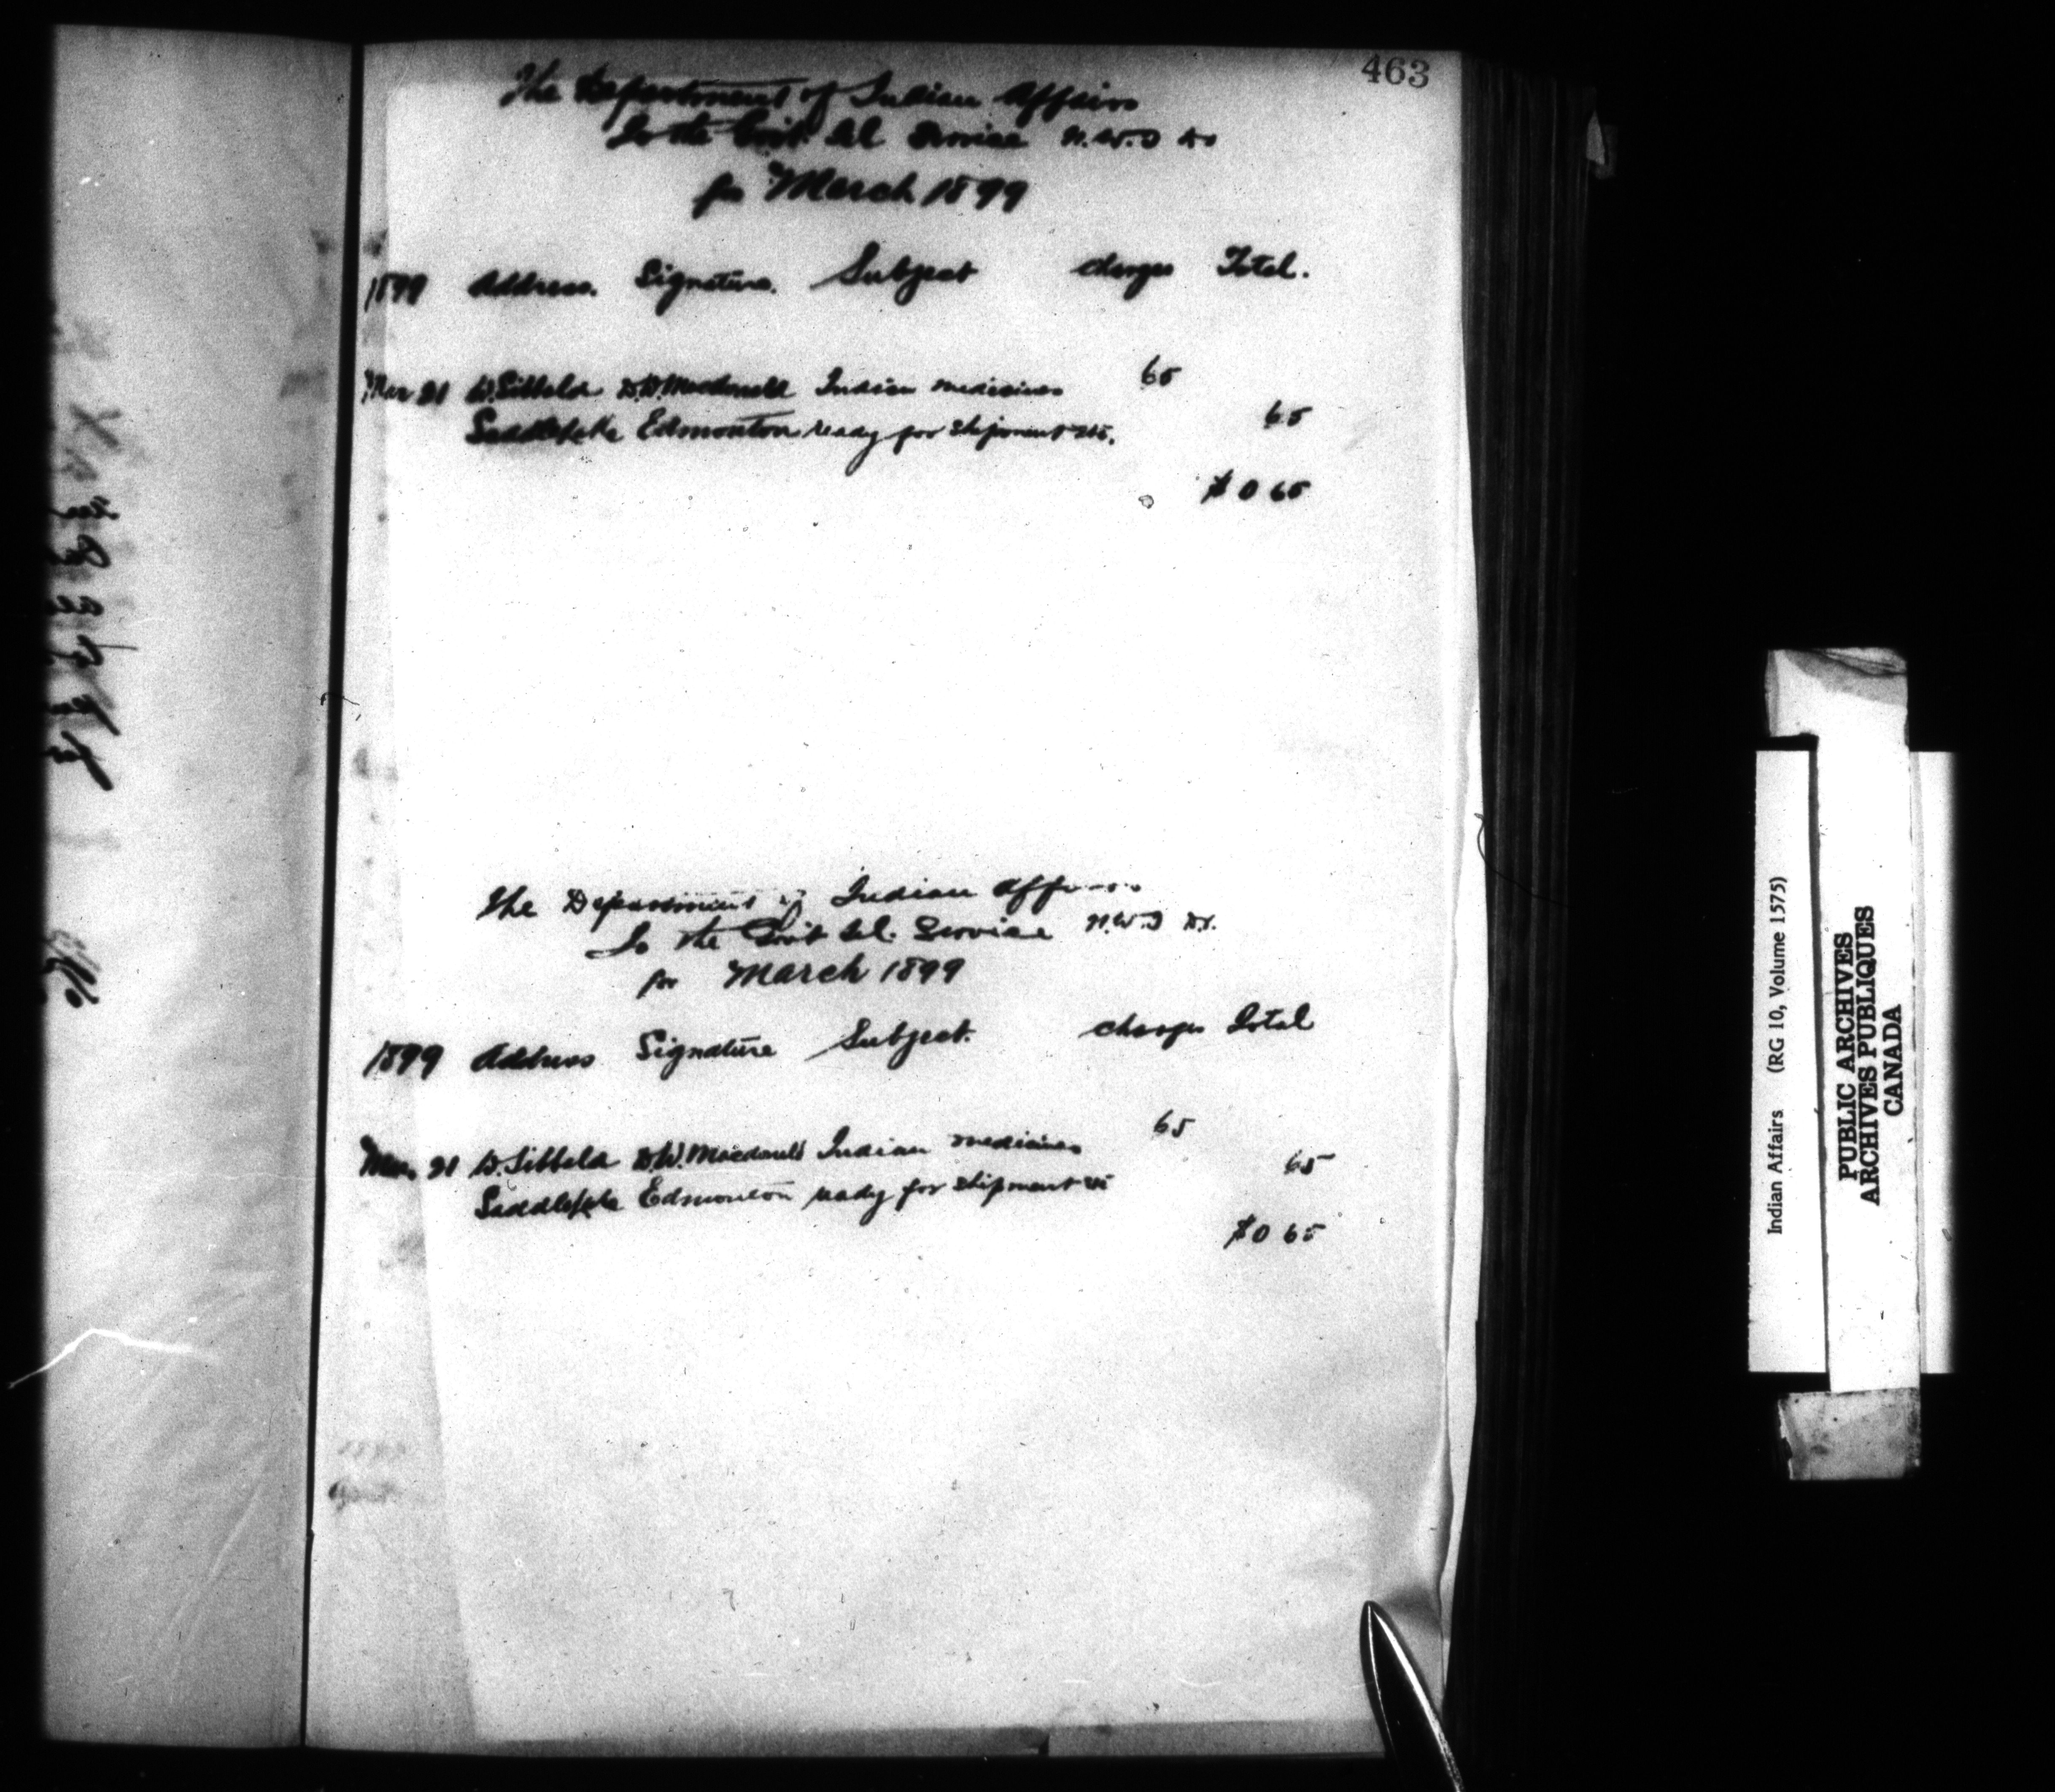 463
The Department of Indian Affairs
To the Govt. Tel Service N.W.T Dr
for March 1899
1899 Address. Signature. Subject charges Total.
Mar 21 W. Sibbald D.W. Macdonald Indian medicines 65
Saddlelake Edmonton ready for shipment etc. 65
$0 65
The Department of Indian Affairs
To the Govt Tel. Service N.W.T Dr.
for March 1899
1899 Address Signature Subject. charges Total
Mar. 21 W. Sibbald D.W. Macdonald Indian medicines 65
Saddlelake Edmonton ready for shipment etc 65
$0 65
Indian Affairs (RG 10, Volume 1575)
PUBLIC ARCHIVES
ARCHIVES PUBLIQUES
CANADA